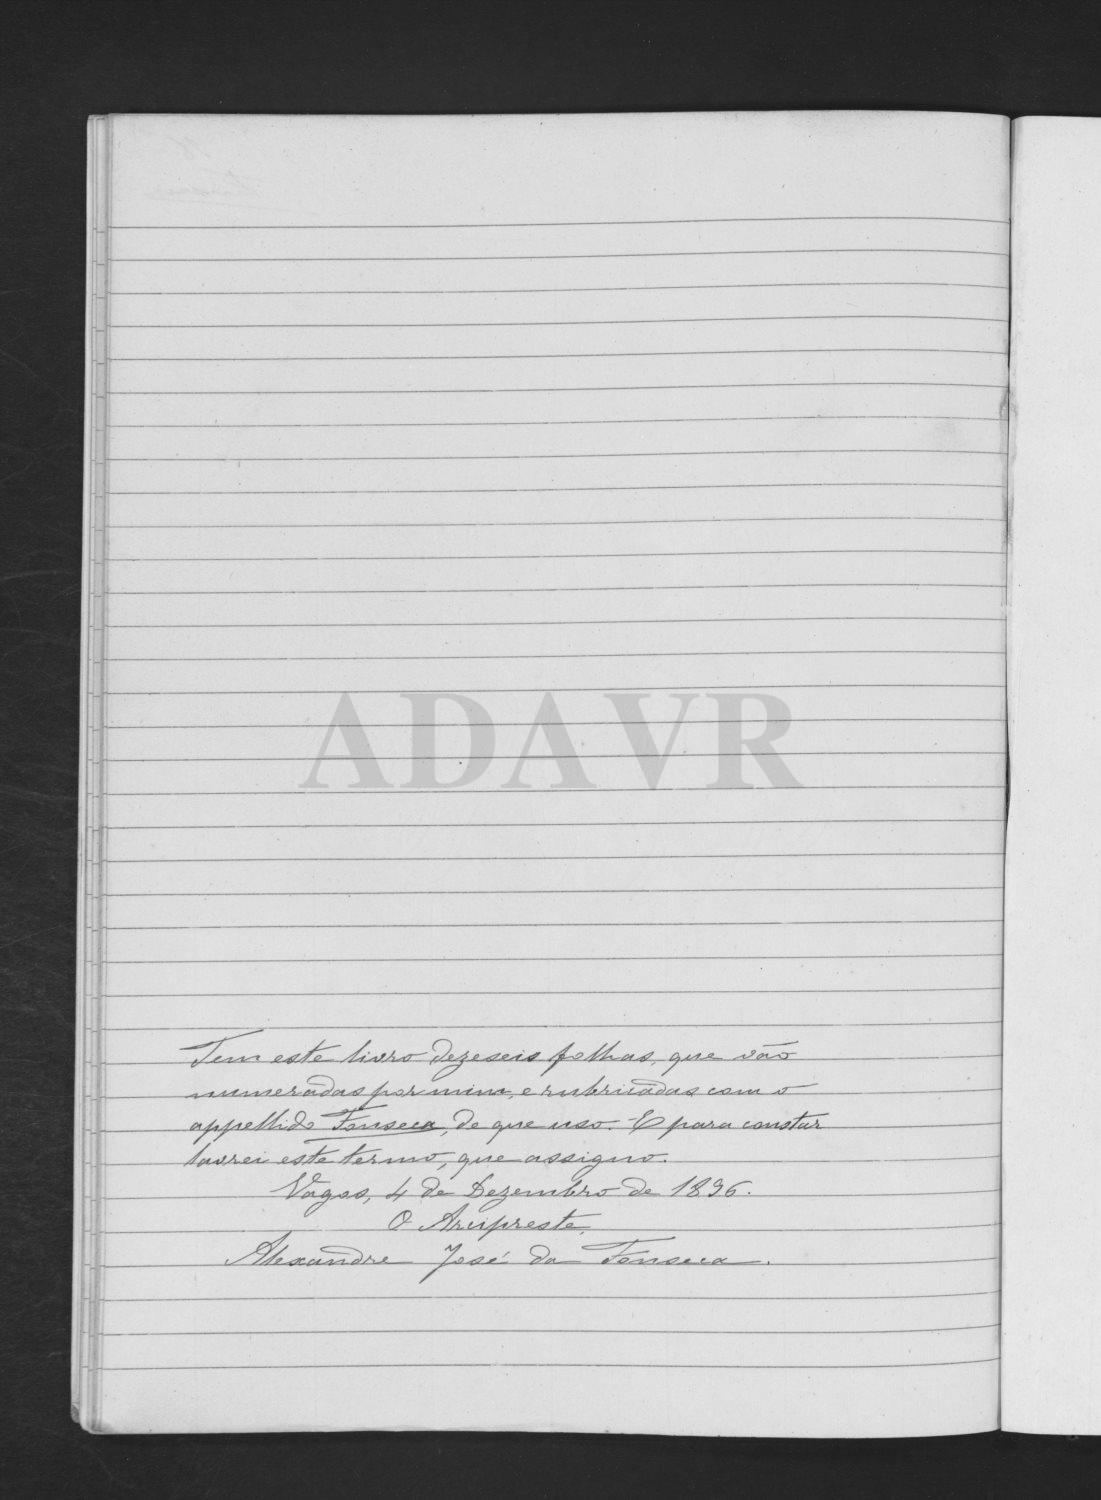 ADAVR
Tem este livro dezeseis folhas, que vão
numeradas por mim, e rubricadas com o
appellido Fonseca, de que uso. E para constar
lavrei este termo, que assigno.
Vagos, 4 de Dezembro de 1896.
O Arcipreste,
Alexandre José da Fonseca.